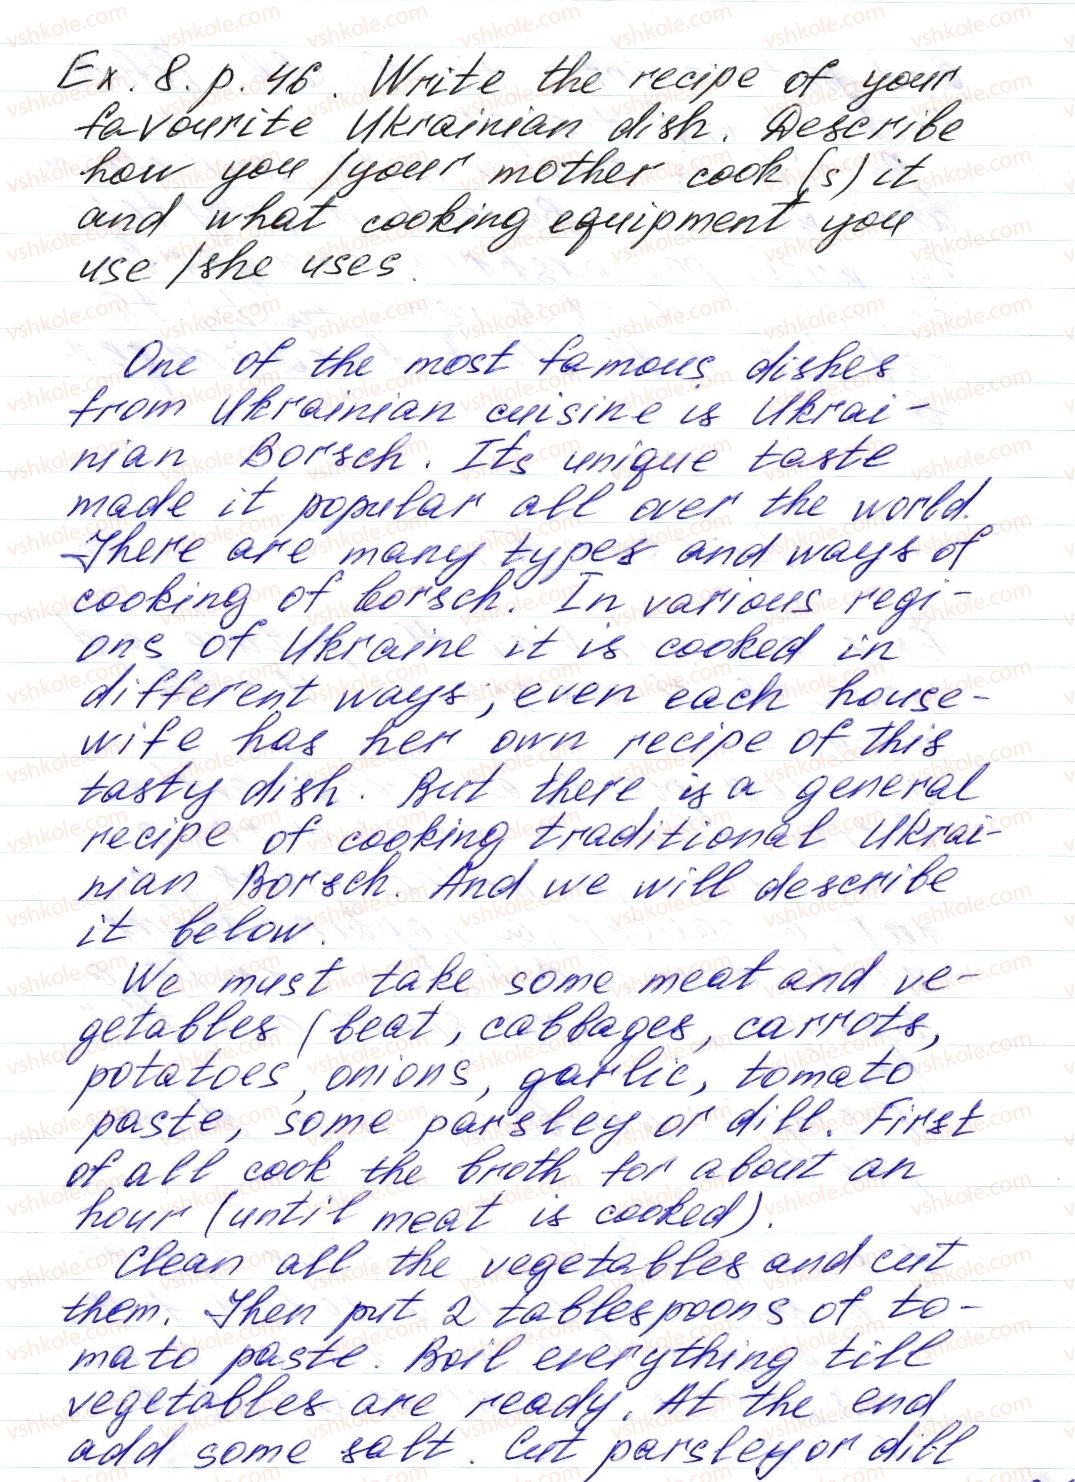 Ex. 8. p. 46. Write the recipe of your
favourite Ukrainian dish. Describe
how you / your mother cook (s) it
and what cooking equipment you
use / she uses.
One of the most famous dishes
from Ukrainian cuisine is Ukrai-
nian Borsch. Its unique taste
made it popular all over the world.
There are many types and ways of
cooking of borsch. In various regi-
ons of Ukraine it is cooked in
different ways, even each house-
wife has her own recipe of this
tasty dish. But there is a general
recipe of cooking traditional Ukrai-
nian Borsch. And we will describe
it below.
We must take some meat and ve-
getables (beat, cabbages, carrots,
potatoes, onions, garlic, tomato
paste, some parsley or dill. First
of all cook the broth for about an
hour (until meat is cooked).
Clean all the vegetables and cut
them. Then put 2 tablespoons of to-
mato paste. Boil everything till
vegetables are ready. At the end
add some salt. Cut parsley or dill
vshkole.com